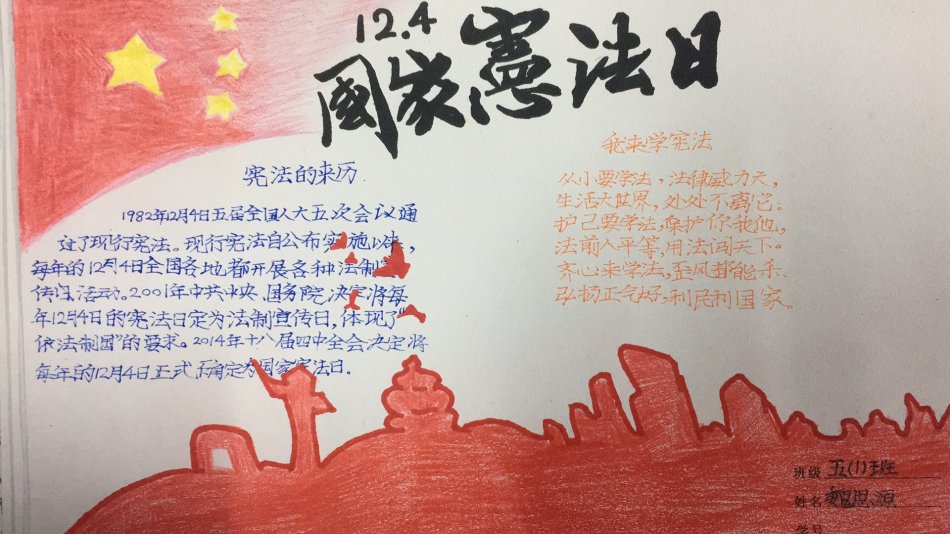 12.4
國家憲法日
宪法的来历
1982年12月4日五届全国人大五次会议通
过了现行宪法。现行宪法自公布实施以来,
每年的12月4日全国各地都开展各种法制宣
传 活动。2001年中共中央、国务院决定将每
年12月4日的宪法日定为法制宣传日,体现了“
依法制国”的要求。2014年十八届四中全会决定将
每年的12月4日正式 确定为国家宪法日.
我来学宪法
从小要学法,法律威力大,
生活大世界,处处不离它。
护己要学法,保护你我他,
法前人平等,用法闯天下。
齐心来学法,歪风都能杀.
弘扬正气好,利民利国家。
班级 五(1)班
姓名 魏思源
学号